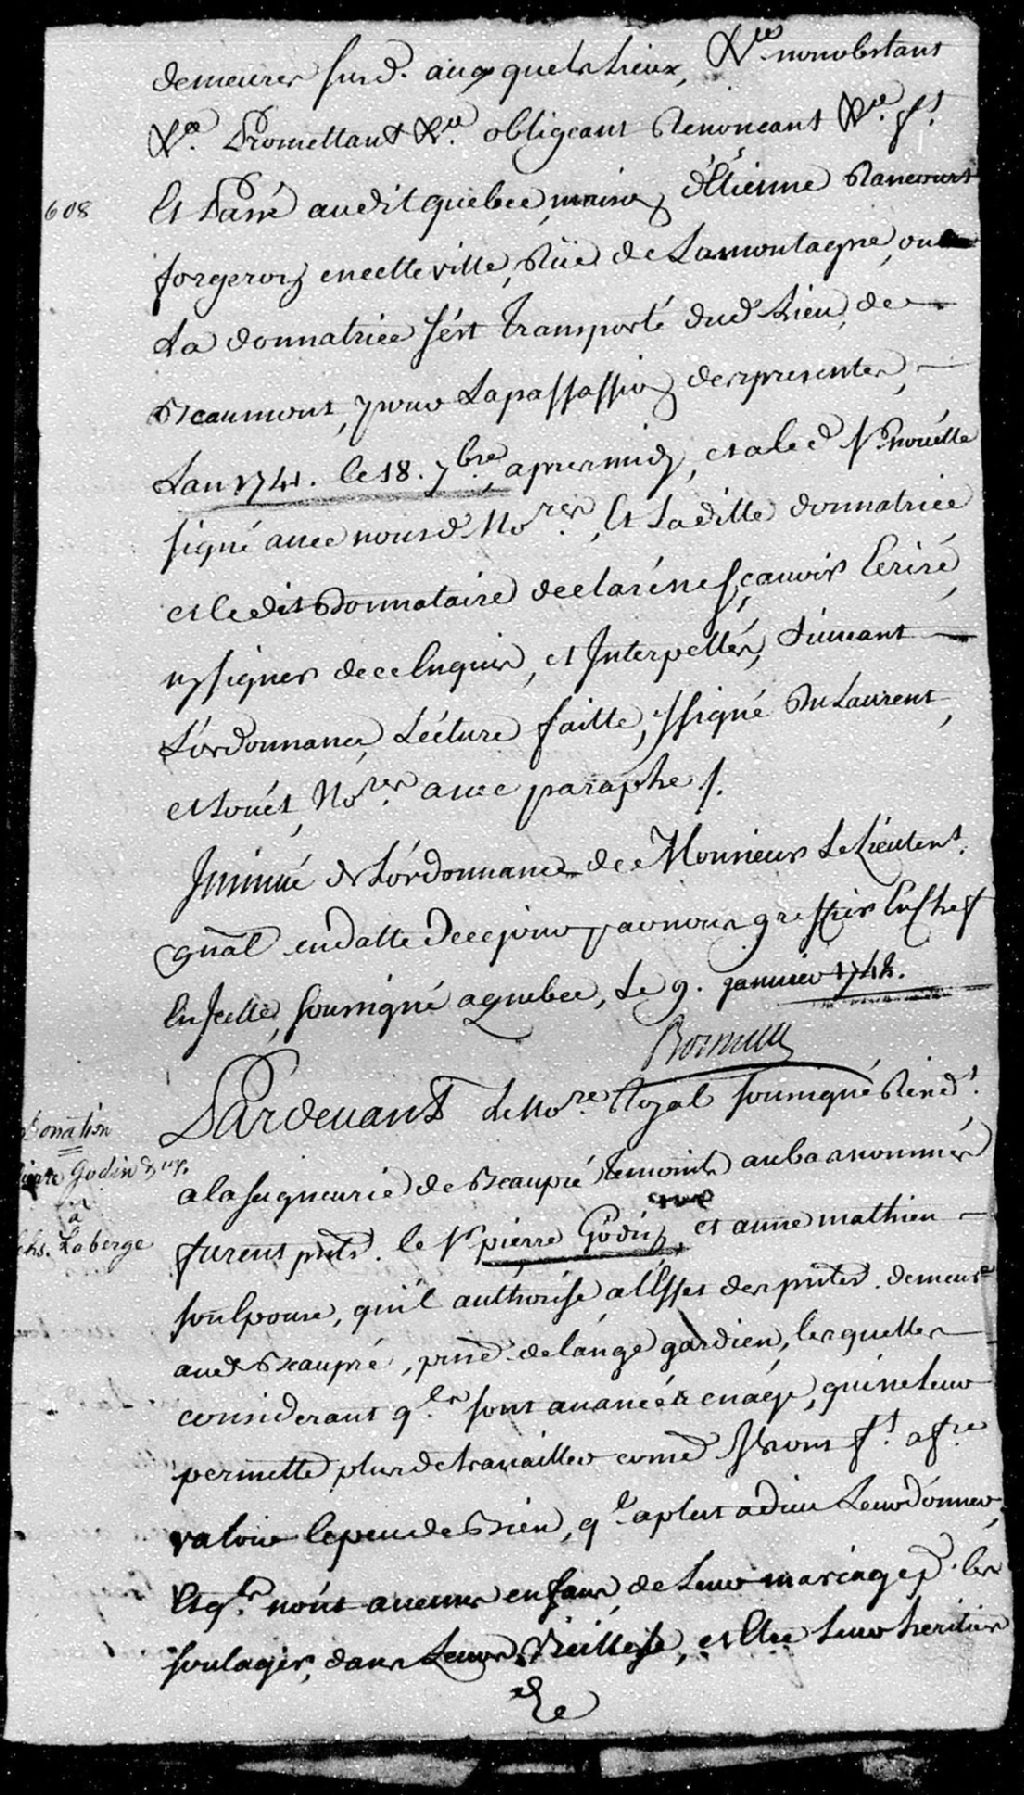 demeures susd. auxquels lieux, &ces nonobstant
&ca. Promettant &ca. obligeant Renonceant &ca. ft.
608
Et Passé audit quebec, maison d'Etienne Rancourt
forgeron en cette ville, Rüe de Lamontagne, ou
La donnatrice s'est Transporté dud. Lieu de
Beaumont, pour La passassion des presentes,
Lan 1741. le 18. 7bre, apres midy, et a led. Sr.
signé avec nous d. Nores, Et Laditte donnatrice
et ledit Donnataire declaré ne sçavoir Ecrire
ny signer de ce Enquis, et Interpellés, suivant
L'ordonnance, Lecture faitte, signé Du Laurent
et Louet, Nores. avec paraphe /.
Insinué de L'ordonnance de Monsieur Le Lieutent.
gnâl en datte de ce jour par nous greffier En Chef
En Icelle, soussigné a quebec, Le 9. janvier 1742.
Boisseau
Donation
pierre Godin & ux.
a
chs. Laberge
Pardevant Le Nore. Royal soussigné Resid.t
a la seigneurie de Beaupré Temoins au bas nommés
furent pnts. le Sr pierre Godin, et anne mathieu
son Epouse, qu'il authorise a l'Effet des pntes. demeurt
aud. Beaupré, psse de l'ange gardien, lesquelles
considerant qls. sont avancées en age, qui ne leur
permette plus de travailler come Ils ont ft. a fre
valoir le peu de Bien, ql a plut a dieu Leur donner,
Et qls. n'ont aucuns enfans de Leur mariage p. les
soulager, dans Leurs Vieillesse, et Etre Leur heritier
De